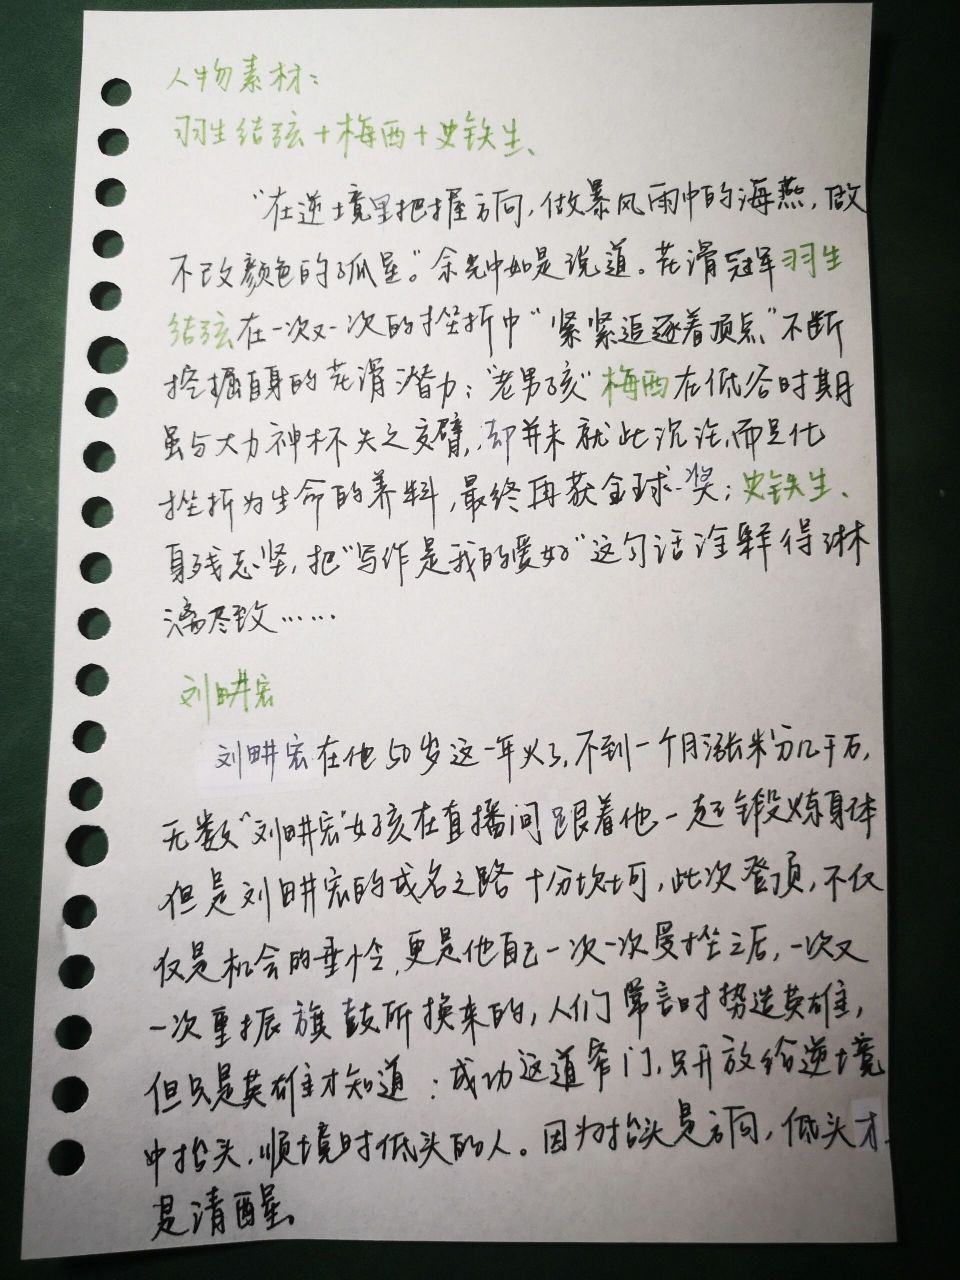 人物素材：
羽生结弦+梅西+史铁生、
“在逆境里把握方向，做暴风雨中的海燕，做
不改颜色的孤星。”余光中如是说道。花滑冠军羽生
结弦在一次又一次的挫折中“紧紧追逐着顶点”不断
挖掘自身的花滑潜力；“老男孩”梅西在低谷时期
虽与大力神杯失之交臂，却并未就此沉沦，而是化
挫折为生命的养料，最终再获金球奖；史铁生、
身残志坚，把“写作是我的爱好”这句话诠释得淋
漓尽致……
刘畊宏
刘畊宏在他50岁这一年火了，不到一个月涨粉几千万，
无数“刘畊宏”女孩在直播间跟着他一起锻炼身体
但是刘畊宏的成名之路十分坎坷，此次登顶，不仅
仅是机会的垂怜，更是他自己一次一次受挫之后，一次又
一次重振旗鼓所换来的，人们常言时势造英雄，
但只是英雄才知道：成功这道窄门，只开放给逆境
中抬头，顺境时低头的人。因为抬头是方向，低头才
是清醒。